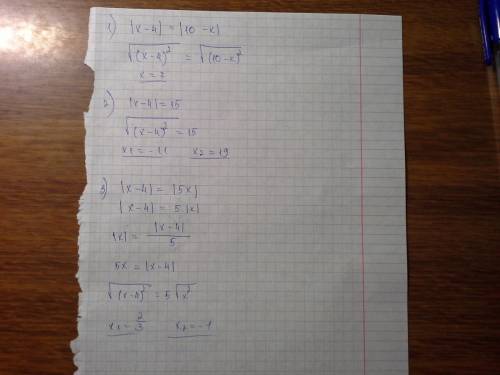 1) |x-4| = |10-x|
√(x-4)² = √(10-x)²
x = 7
2) |x-4| = 15
√(x-4)² = 15
x₁ = -11 x₂ = 19
3) |x-4| = |5x|
|x-4| = 5|x|
|x| = |x-4|/5
5x = |x-4|
√(x-4)² = 5√x²
x₁ = 2/3 x₂ = -1